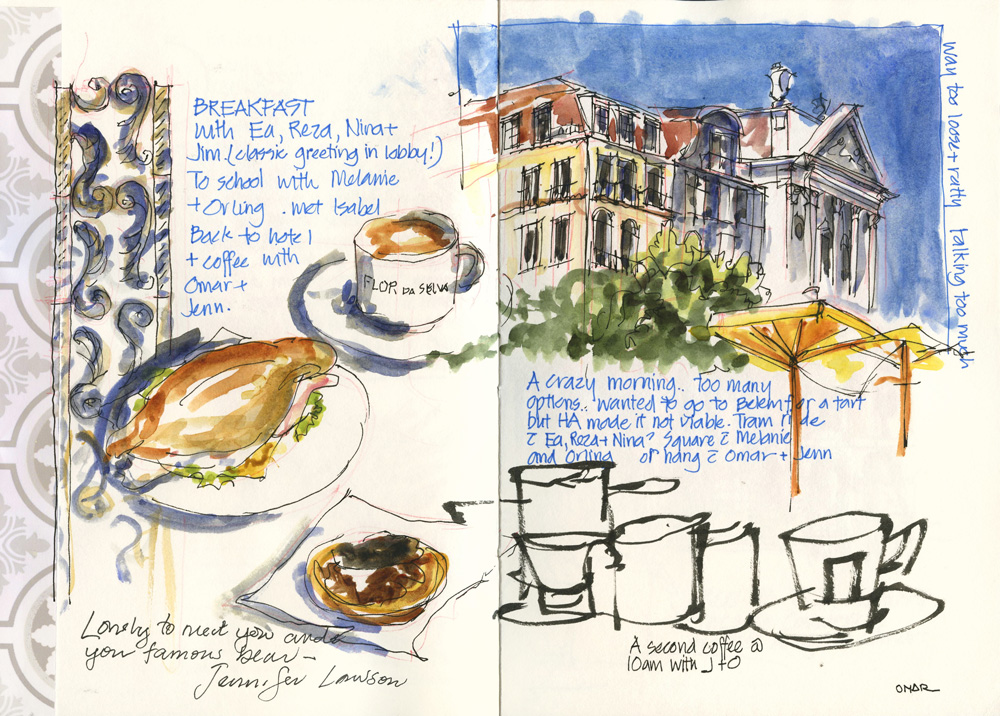 BREAKFAST
with Ea, Reza, Nina +
Jim. (classic greeting in lobby!)
To school with Melanie
+ Orling . met Isabel
Back to hotel
+ coffee with
Omar +
Jenn.
FLOR DA SELVA
way too loose + ratty talking too much
A crazy morning.. too many
options.. wanted to go to Belem for a tart
but HA made it not viable. Tram ride
c̄ Ea, Reza + Nina? Square c̄ Melanie
and Orling or hang c̄ Omar + Jenn
Lovely to meet you and
your famous bear –
Jennifer Lawson
A second coffee @
10am with J + O
OMAR